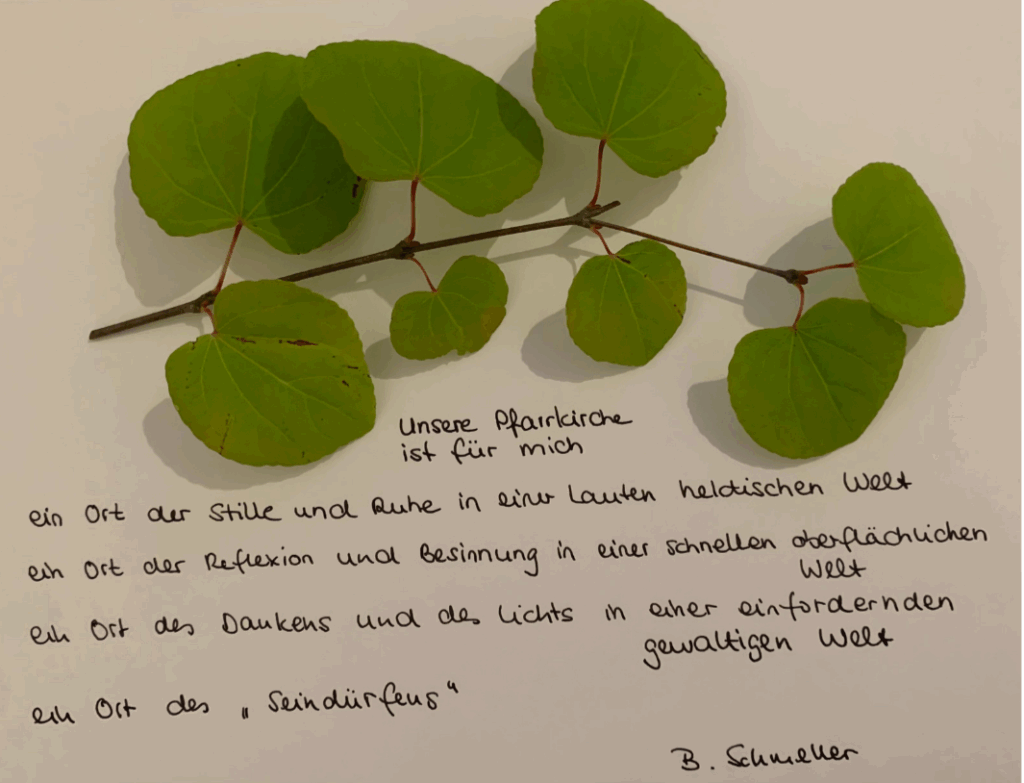 Unsere Pfarrkirche
ist für mich
ein Ort der Stille und Ruhe in einer lauten hektischen Welt
ein Ort der Reflexion und Besinnung in einer schnellen oberflächlichen
Welt
ein Ort des Dankens und des Lichts in einer einfordernden
gewaltigen Welt
ein Ort des „Seindürfens“
B. Schmeller